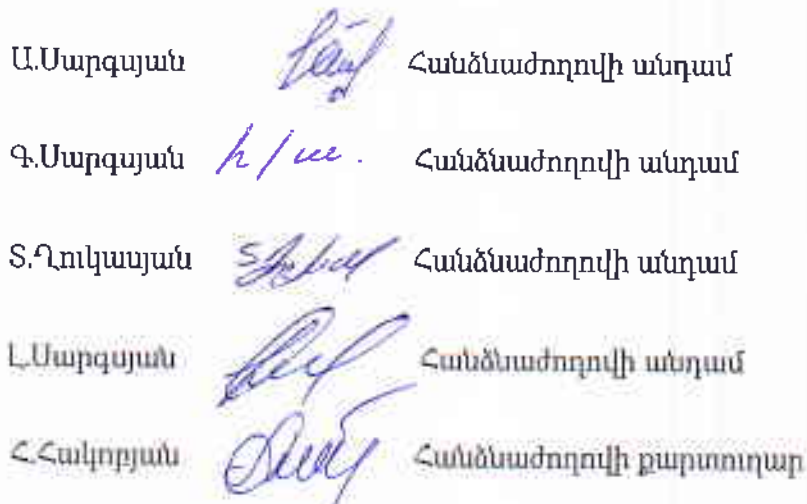 Ա.Սարգսյան Հանձնաժողովի անդամ
Գ.Սարգսյան հ/ա. Հանձնաժողովի անդամ
Տ.Ղուկասյան Հանձնաժողովի անդամ
Լ.Սարգսյան Հանձնաժողովի անդամ
Հ.Հակոբյան Հանձնաժողովի քարտուղար